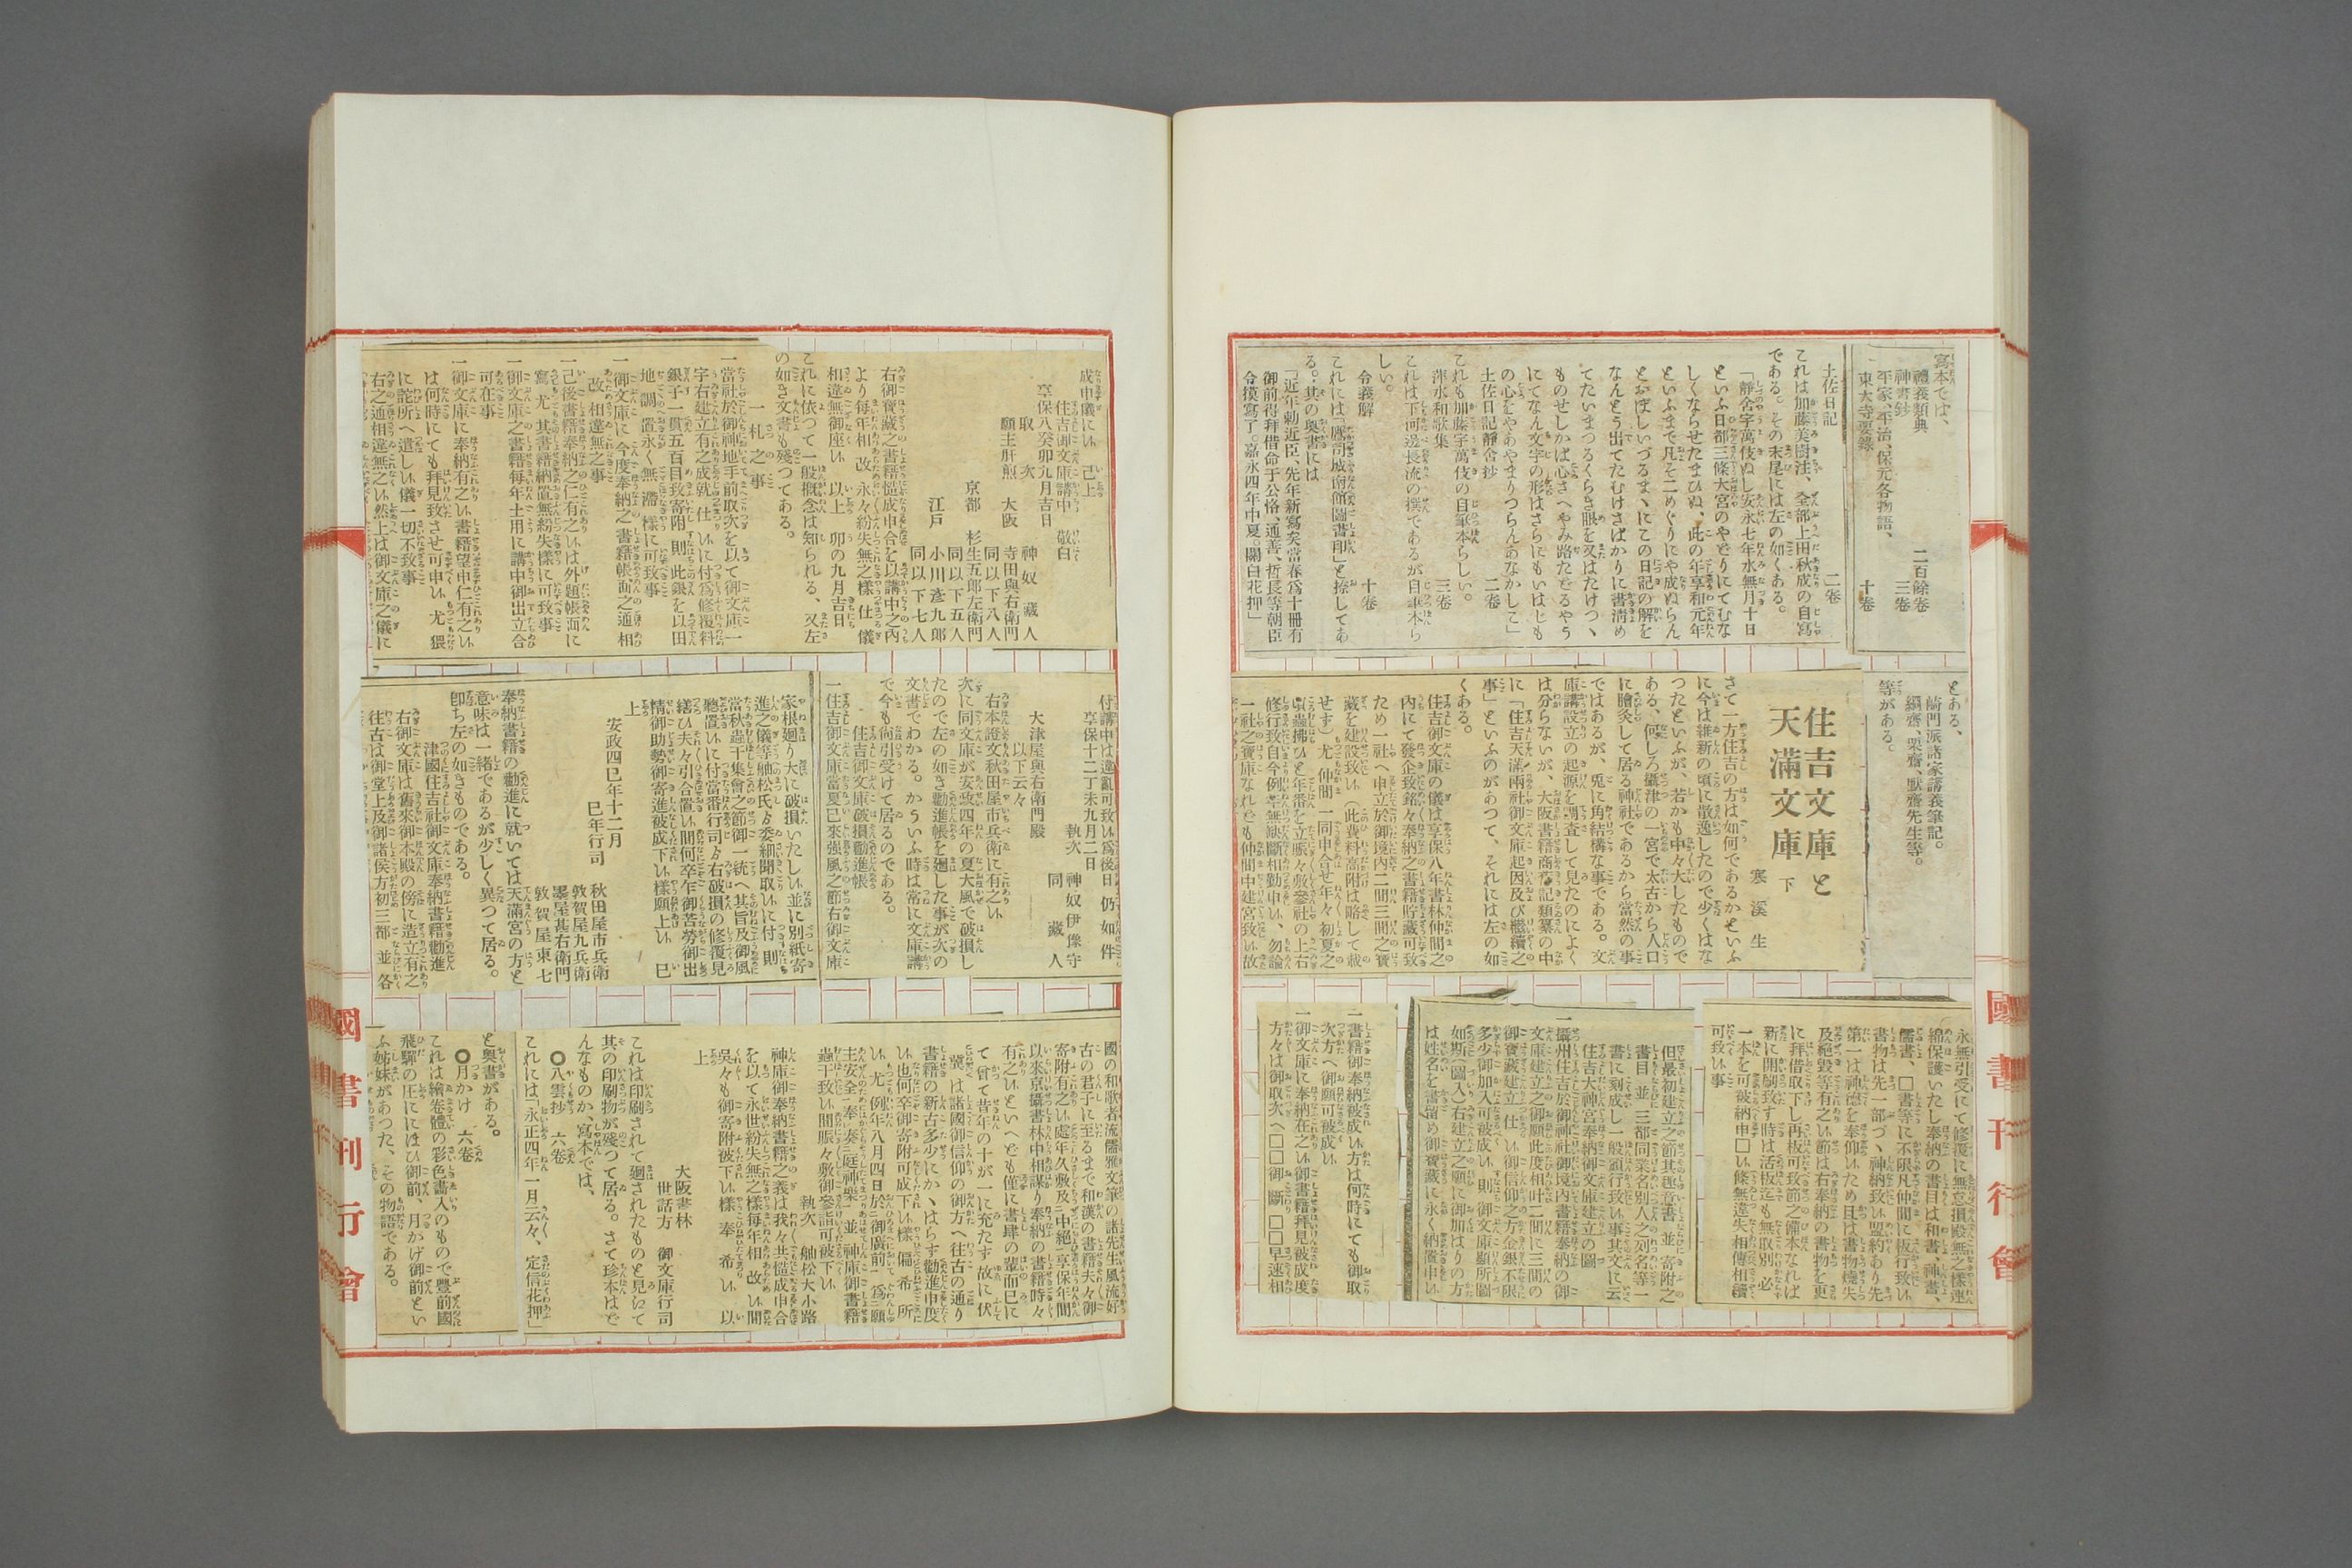 寫本では、
禮義類典　二百餘卷
神書鈔　三卷
平家、平治、保元各物語、
東大寺要錄　十卷
土佐日記　二卷
これは加藤美樹注、全部上田秋成の自寫
である。その末尾には左の如くある。
「靜舍字萬伎ぬし安永七年水無月十日
といふ日都三條大宮のやどりにてむな
しくならせたまひぬ、此の年享和元年
といふまで凡そ二めぐりにや成ぬらん
とおぼしいづるまゝにこの日記の解を
なんとう出てたむけさばかりに書淸め
てたいまつるくらき眼を又はたけつゝ
ものせしかば心さへやみ路たどるやう
にてなん文字の形はさらにもいはじも
の心をやあやまりつらんあなかしこ」
土佐日記靜舍鈔　二卷
これも加藤字萬伎の自筆本らしい。
萍水和歌集　三卷
これは下河邊長流の撰であるが自筆本ら
しい。
令義解　十卷
これには「鷹司城南館圖書印」と捺してあ
る。其の奧書には
「近年勅近臣、先年新寫矣當春爲十冊有
御前得拜借命于公恪、通善、哲長等朝臣
令摸寫了。嘉永四年中夏。關白花押」
とある、
崎門派諸家講義筆記。
絅齋、栗齋、默齋先生等。
等がある。
住吉文庫と
天滿文庫　下
寒溪生
さて一方住吉の方は如何であるかといふ
に今は維新の頃に散逸したので少くはな
つたといふが、若かも中々大したもので
ある、何しろ攝津の一宮で太古から人口
に膾炙して居る神社であるから當然の事
ではあるが、兎に角結構な事である。文
庫講設立の起源を調査して見たのによく
は分らないが、大阪書籍商舊記類纂の中
に「住吉天滿兩社御文庫起因及び繼續之
事」といふのがあつて、それには左の如
くある。
住吉御文庫の儀は享保八年書林仲間之
內にて發企致銘々奉納之書籍貯藏可致
ため一社へ申立於御境內二間三間之寶
藏を建設致い（此費料高附は略して載
せず）尤仲間一同申合せ年々初夏之
頃蟲拂ひと年番を立賑々敷參社の上右
修行致自今例年無缺斷相勤申い、勿論
一社之寶庫なれども仲間中建宮致い故
永無引受にて修復に無怠損毀無之樣連
綿保護いたし奉納の書目は和書、神書、
儒書、□書等に不限凡仲間に板行致い
書物は先一部づゝ神納致い盟約あり先
第一は神德を奉仰いため且は書物燒失
及絕毀等有之い節は右奉納の書物を更
に拜借取下し再板可致節之備本なれば
新に開刷致す時は活板迄も無取別、必
一本を可被納申□い條無違失相傳相續
可致い事
但最初建立之節其趣意書並寄附之
書目並三都同業名別人之刻名等一
書に刻成し一般頒行致い事其文に云
住吉大神宮奉納御文庫建立の圖
一攝州住吉於御神社御境內書籍奉納の御
文庫建立之御願此度相叶二間に三間の
御寶藏建立仕い御信仰之方金銀不限
多少御加入可被成い、則御文庫顯所圖
如斯（圖入）右建立之願に御加はりの方
は姓名を書留め御寶藏に永く納置申い
一書籍御奉納被成い方は何時にても御取
次方へ御願可被成い
一御文庫に奉納在之い御書籍拜見被成度
方々は御取次へ□□御斷□□早速相
成申儀にい　已上
住吉御文庫講中　敬白
享保八癸卯九月吉日
取次　神奴藏人
願主肝煎　大阪　寺田與右衞門
同以下八人
京都　杉生五郞左衞門
同以下五人
江戶　小川彥九郞
同以下七人
右御寶藏之書籍慥成申合を以講中之內
より每年相改永々紛失無之樣仕儀
相違無御座い　以上　卯の九月吉日
これに依つて一般槪念は知られる、又左
の如き文書も殘つてある。
一札之事
一當社於御神地手前取次を以て御文庫一
宇右建立有之成就仕いに付爲修覆料
銀子一貫五百目致寄附則此銀を以田
地調置永く無滯樣に可致事
一御文庫に今度奉納之書籍帳面之通相
改相違無之事
一己後書籍奉納之仁有之いは外題帳面に
寫尤其書籍納置無紛失樣に可致事
一御文庫之書籍每年土用に講中御出立合
可在事
一御文庫に奉納有之い書籍望申仁有之い
は何時にても拜見致させ可申い尤猥
に詑所へ遣しい儀一切不致事
右之通相違無之い然上は御文庫之儀に
付講中は違亂可致い爲後日仍如件
享保十二丁未九月二日
執次　神奴伊豫守
同　藏人
大津屋與右衞門殿
以下云々
右本證文秋田屋市兵衞に有之い
次に同文庫が安政四年の夏大風で破損し
たので左の如き勸進帳を廻した事が次の
文書でわかる。かういふ時は常に文庫講
で今も尙引受けて居るのである。
住吉御文庫破損勸進帳
一住吉御文庫當夏已來强風之節右御文庫
家根廻り大に破損いたしい並に別紙寄
進之儀等舳松氏ゟ委細聞取いに付則
當秋蟲干集會之節御一統へ其旨及御風
聽置いに付當番行司ゟ右破損の修覆見
繕ひ夫々引合置い間何卒乍御苦勞御出
精御助勢御寄進被成下い樣願上い　巳
上
安政四巳年十二月
巳年行司
秋田屋市兵衞
敦賀屋九兵衞
墨屋甚右衞門
敦賀屋東七
奉納書籍の勸進に就いては天滿宮の方と
意味は一緖であるが少しく異つて居る。
卽ち左の如きものである。
津國住吉社御文庫奉納書籍勸進
右御文庫は舊來御本殿の傍に造立有之
往古は御堂上及御諸侯方初三都並各
國の和歌者流儒雅文筆の諸先生風流好
古の君子に至るまで和漢の書籍夫々御
寄附有之い處年久敷及二中絕一享保年間
以來京攝書林中相謀り奉納の書籍時々
有之いといへども僅に書肆の輩而已に
て曾て昔年の十が一に充たす故に伏
冀は諸國御信仰の御方へ往古の通り
書籍の新古多少にかゝはらす勸進申度
い也何卒御寄附可成下い樣偏希所
い尤例年八月四日於二御廣前一爲二願
主安全一奉レ奏二庭神樂一並神庫御書籍
蟲干致い間賑々敷御參詣可被下い
執次　舳松大小路
神庫御奉納書籍之義は我々共慥成申合
を以て永世紛失無之樣每年相改い間
吳々も御寄附被下い樣奉希い　以
上
大阪書林
世話方　御文庫行司
これは印刷されて廻されたものと見江て
其の印刷物が殘つて居る。さて珍本はど
んなものか、寫本では、
○八雲抄　六卷
これには「永正四年一月云々、定信花押」
と奧書がある。
○月かけ　六卷
これは繪卷體の彩色畵入のもので豐前國
飛驒の庄ににほひ御前、月かげ御前とい
ふ姊妹があつた、その物語である。
國書刊行會
國書刊行會